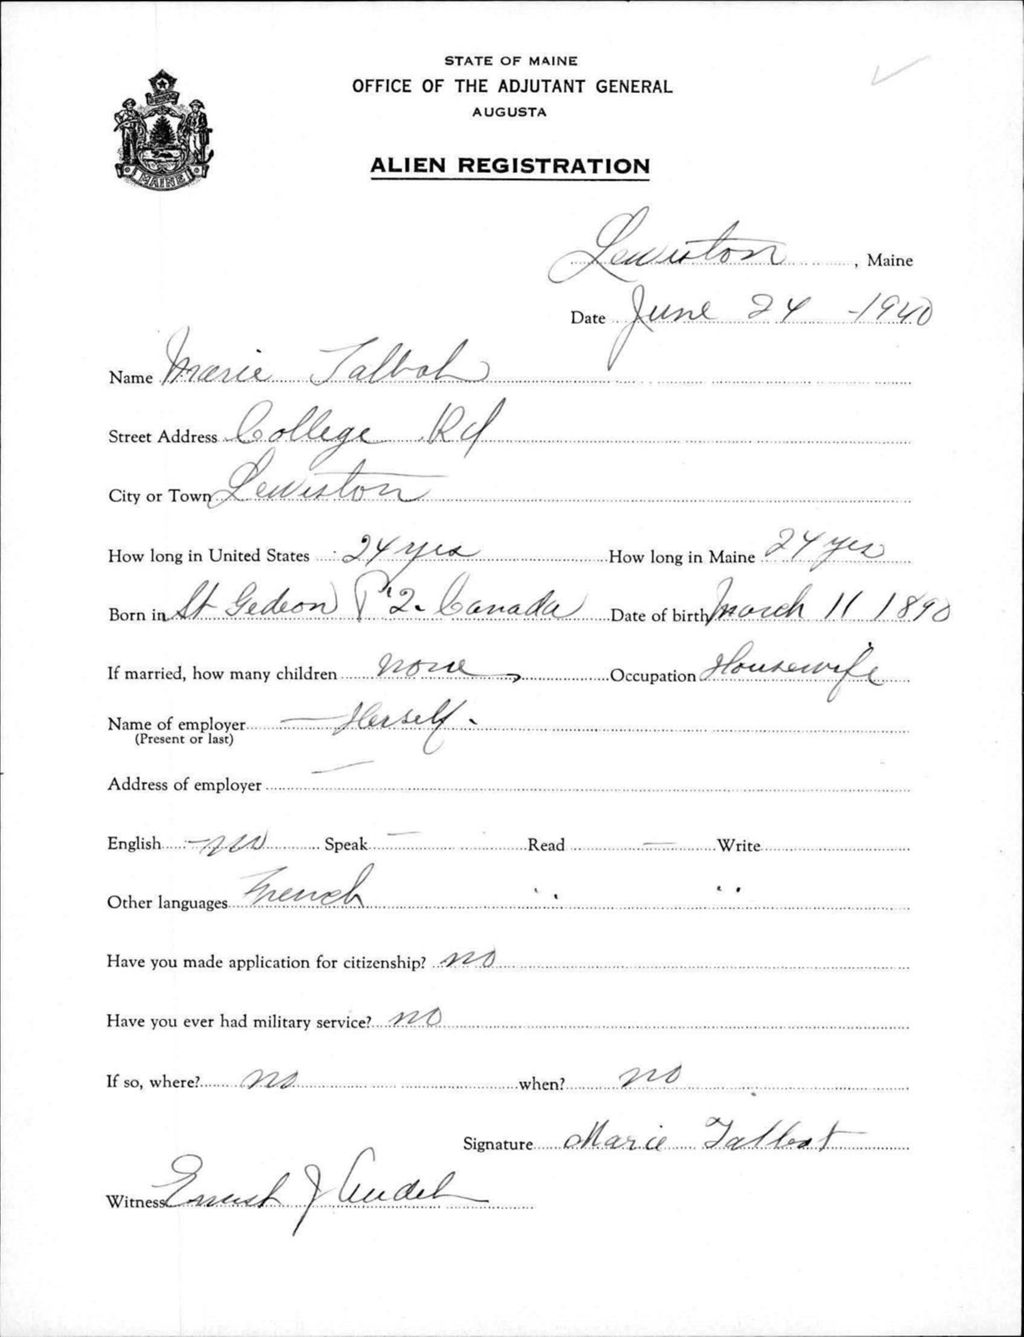 STATE OF MAINE
OFFICE OF THE ADJUTANT GENERAL
AUGUSTA
MAINE
ALIEN REGISTRATION
Lewiston, Maine
Date June 24 - 1940
Name Marie Talbot
Street Address College Rd
City or Town Lewiston
How long in United States 24 yrs How long in Maine 24 yrs
Born in St Gedeon P'2. Canada Date of birth March 11 1890
If married, how many children none, Occupation Housewife
Name of employer — Herself.
(Present or last)
Address of employer —
English - no Speak — Read — Write
Other languages French " "
Have you made application for citizenship? no
Have you ever had military service? no
If so, where? no when? no
Signature Marie Talbot
Witness Ernest J